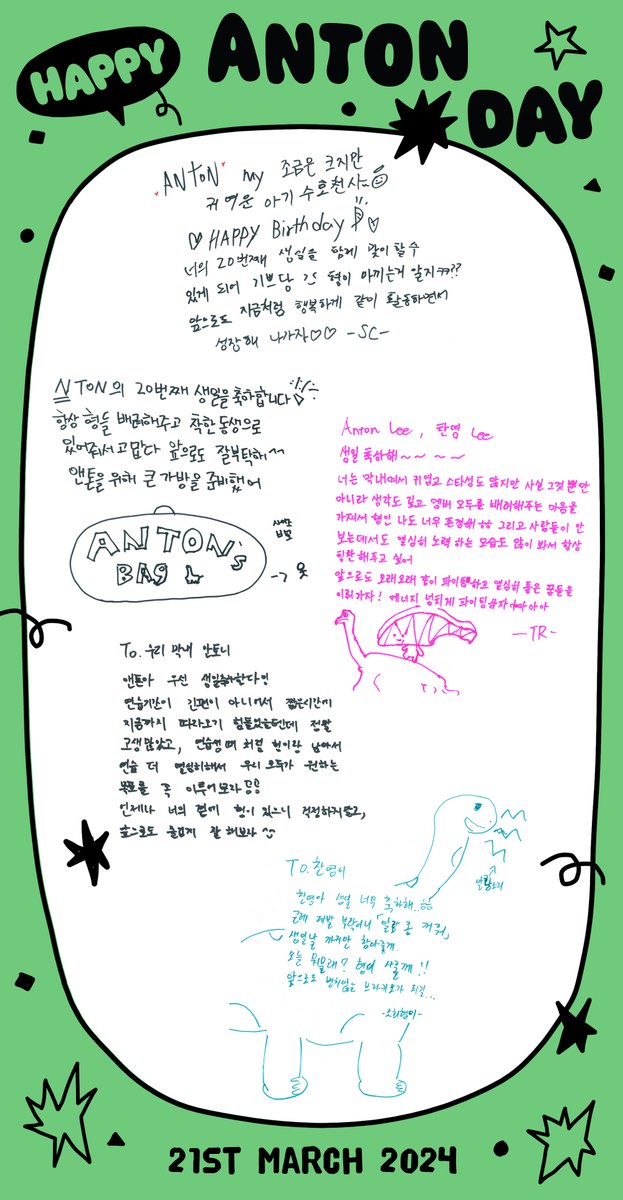 HAPPY ANTON DAY
ANTON my 조금은 크지만
귀여운 아기 수호천사
HAPPY Birthday
너의 20번째 생일을 함께 맞이할 수
있게 되어 기쁘당 형이 아끼는거 알지??
앞으로도 지금처럼 행복하게 같이 활동하면서
성장해 나가자♡♡ -SC-
NTON의 20번째 생일을 축하합니다
항상 형들 배려해주고 착한 동생으로
있어줘서 고맙다 앞으로도 잘부탁해~
앤톤을 위해 큰 가방을 준비했어
ANTON's
BAG
Anton Lee, 찬영 Lee
생일 축하해~~~~
너는 막내여서 귀엽고 스타성도 많지만 사실 그것 뿐만
아니라 생각도 깊고 멤버 모두를 배려해주는 마음을
가져서 형인 나도 너무 존경해 그리고 사람들이 안
보는데서도 열심히 노력 하는 모습도 많이 봐서 항상
칭찬해주고 싶어
앞으로도 오래오래 같이 파이팅하고 열심히 좋은 꿈들을
이뤄가자! 에너지 넘치게 파이팅하자 아아아
-TR-
To. 우리 막내 안토니
앤톤아 우선 생일축하한다잉
연습기간이 긴편이 아니여서 짧은시간에
지금까지 따라오기 힘들었을텐데 정말
고생많았고, 연습생때 처럼 형이랑 남아서
연습 더 열심히해서 우리 모두가 원하는
목표를 꼭 이루어보자
언제나 너의 곁에 형이 있으니 걱정하지말고,
앞으로도 즐겁게 잘 해보자
To. 찬영이
찬영아 생일 너무 축하해..
근데 제발 부탁이니 「알람 좀 꺼줘」
생일날 까지만 참아줄게.
오늘 뭐먹을래? 형이 사줄게!!
앞으로도 변치않는 브라키오가 되길...
-소희형이-
알람소리
21ST MARCH 2024